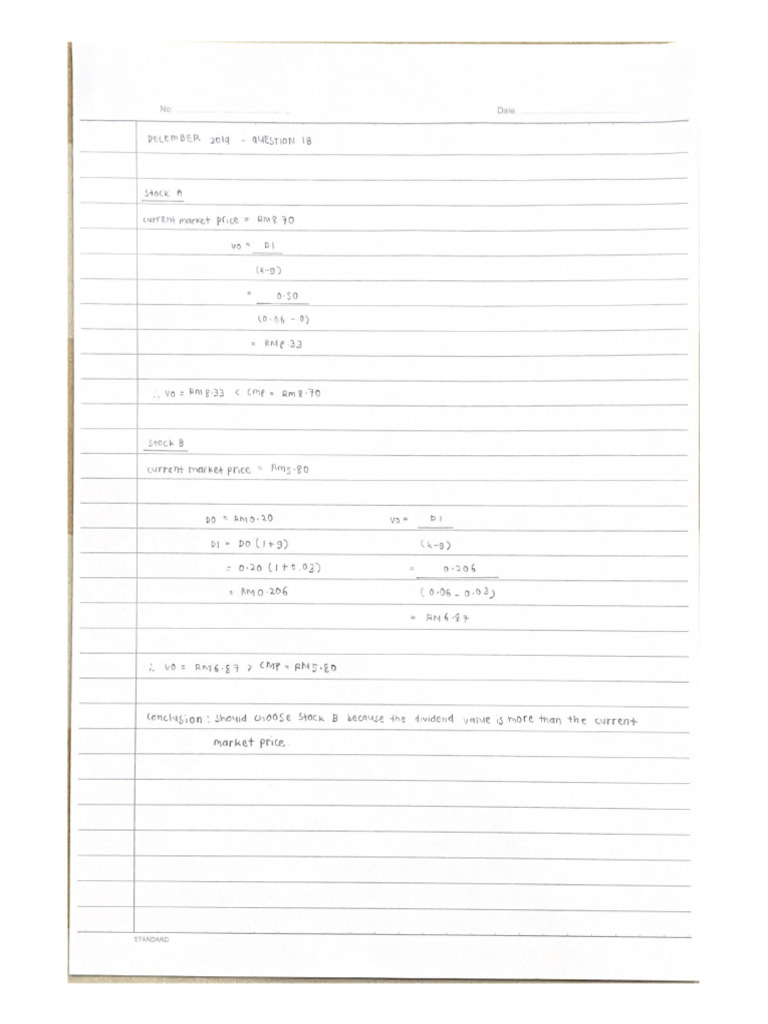 No.
Date
DECEMBER 2019 - QUESTION 1B
Stock A
current market price = RM8.70
V0 = D1
(k-g)
= 0.50
(0.06 - 0)
= RM8.33
∴ V0 = RM8.33 < CMP = RM8.70
Stock B
current market price = RM5.80
D0 = RM0.20
D1 = D0 (1+g)
= 0.20 (1+0.03)
= RM0.206
V0 = D1
(k-g)
= 0.206
(0.06 - 0.03)
= RM6.87
∴ V0 = RM6.87 > CMP = RM5.80
Conclusion : Should choose Stock B because the dividend value is more than the current
market price.
STANDARD